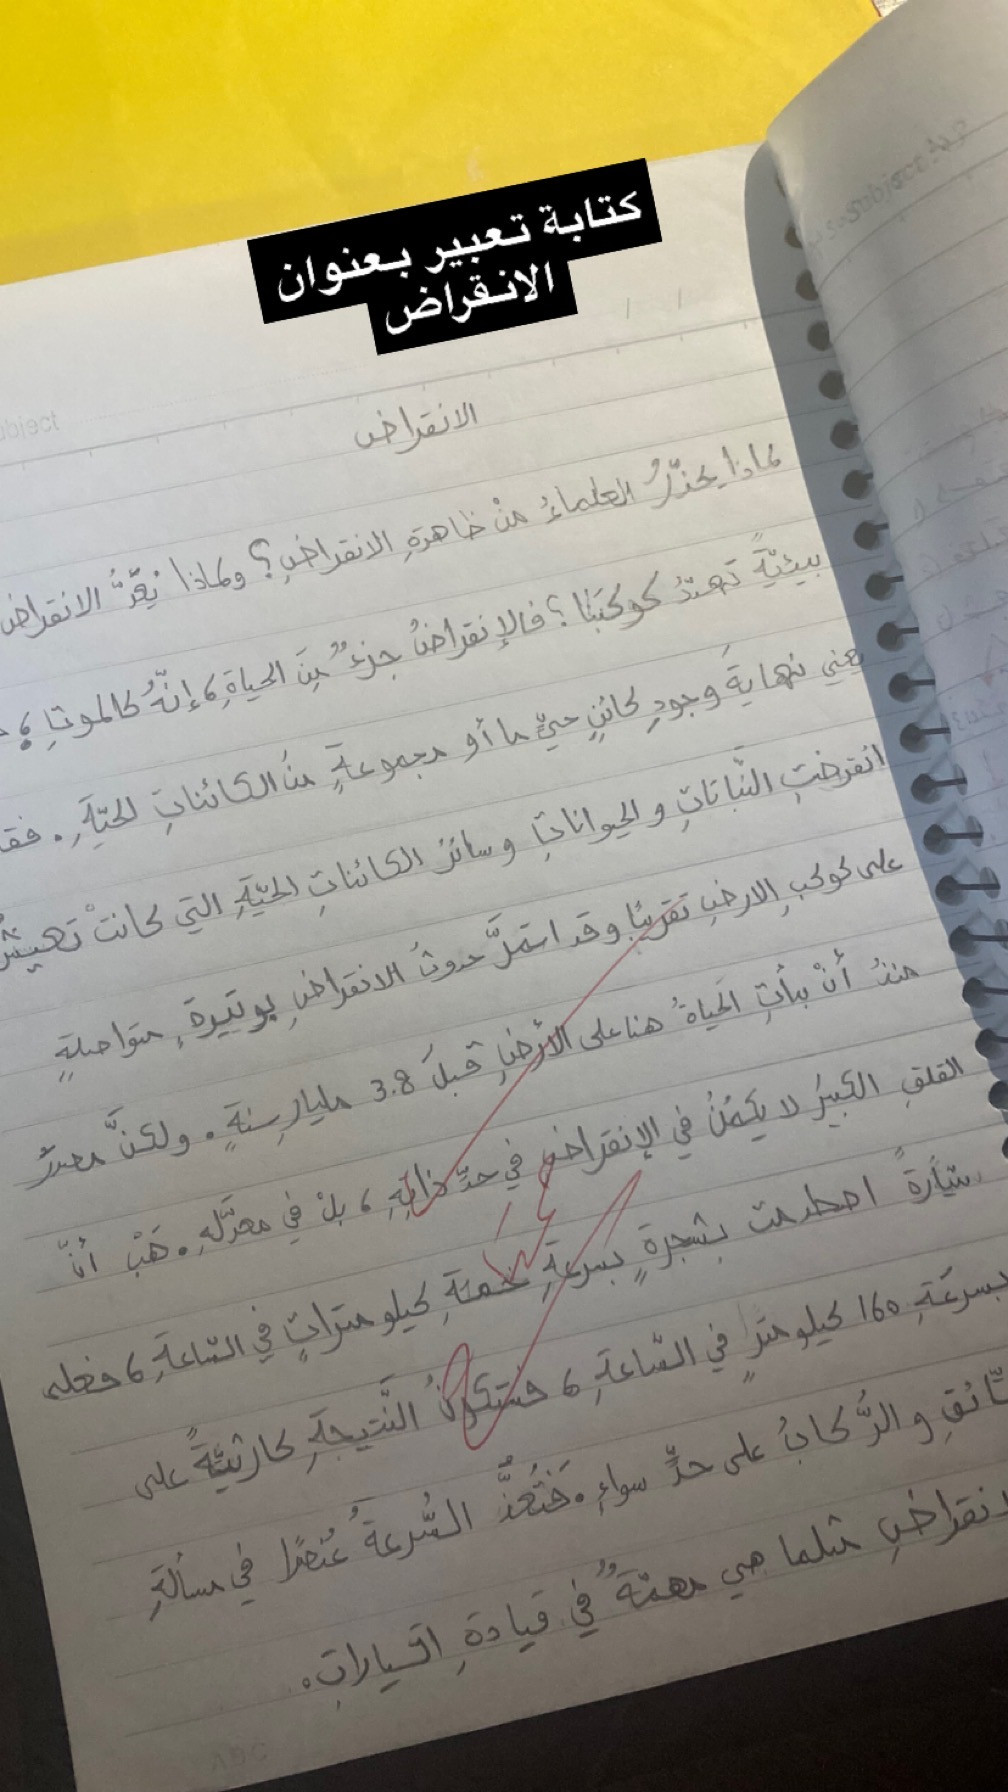 كتابة تعبير بعنوان
الانقراض
الانقراض
لماذا يحذّرُ العلماءُ منْ ظاهرةِ الانقراضِ؟ ولماذا يُعَدُّ الانقراض
بيئيّةً تهدّدُ كوكبَنا؟ فالإنقراضُ جزءٌ مِنَ الحياةِ، إنّهُ كالموتِ،
يعني نهايةَ وجودِ كائنٍ حيٍّ ما أو مجموعةٍ منَ الكائناتِ الحيّةِ. فقد
انقرضتِ النَّباتاتِ والحيواناتِ وسائرُ الكائناتِ الحيّةِ التي كانتْ تعيشُ
على كوكبِ الارضِ تقريبًا وقد استمرَّ حدوثُ الانقراضِ بوتيرةٍ متواصلةٍ
منذُ أنْ بدأتِ الحَياةُ هنا على الأرضِ قبلَ 3.8 مليارِ سنةٍ. ولكنَّ مصدرَ
القلقِ الكبيرُ لا يكمُنُ في الإنقراضِ في حدِّ ذاتِهِ، بلْ في معدَّلِهِ. هَبْ أنّ
سيّارةً اصطدمت بشجرةٍ بسرعةِ خمسةِ كيلومتراتٍ في السّاعةِ، فعلى
بسرعَةِ 160 كيلومترٍ في السّاعةِ، فستكونُ النَّتيجةِ كارثيَّةً على
السّائقِ والرُّكابُ على حدٍّ سواءٍ. فَتُعَدُّ السُّرعةُ عُنصرًا في مسألةِ
الانقراضِ مثلما هي مهمّةٌ في قيادةِ السياراتِ.